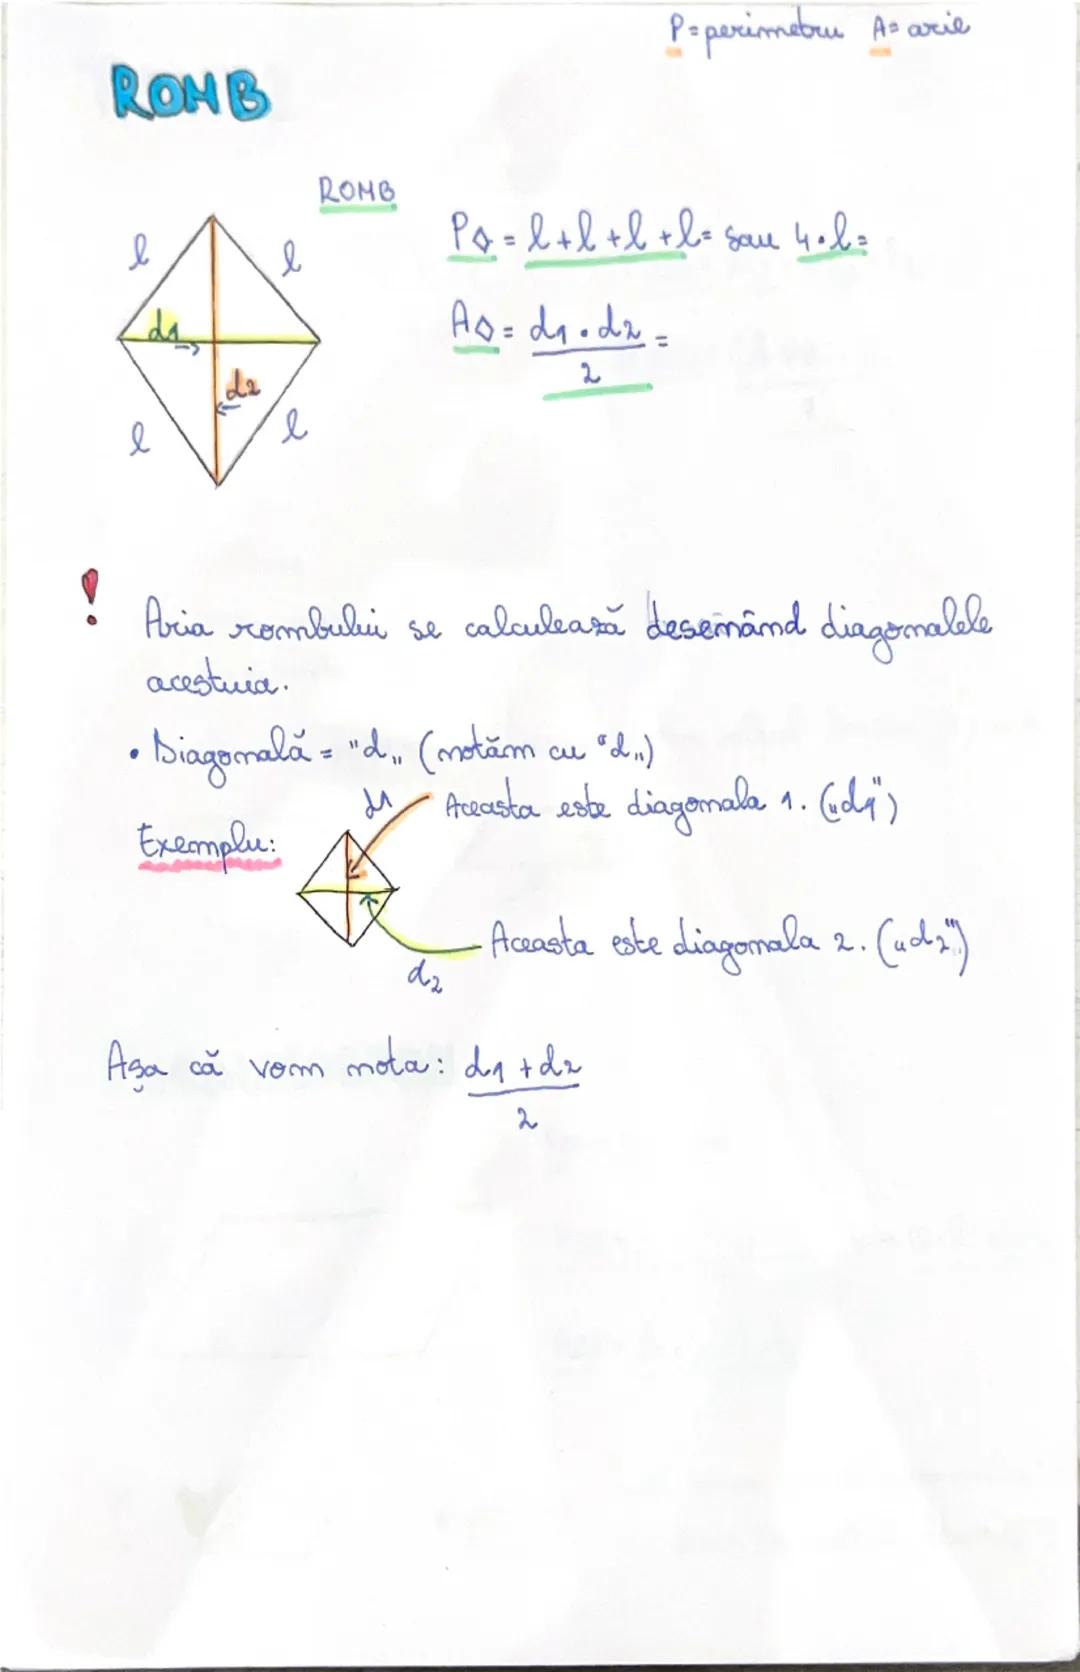 P = perimetru A = arie
ROMB
ROMB
l
l
P◇ = l + l + l + l = sau 4 · l =
d1
A◇ = d1 · d2 =
2
d2
l
l
!
Aria rombului se calculează desenând diagonalele
acestuia.
• Diagonală = "d„ (notăm cu "d„)
d1
Aceasta este diagonala 1. („d1")
Exemplu:
Aceasta este diagonala 2. („d2")
d2
Așa că vom nota: d1 + d2
2